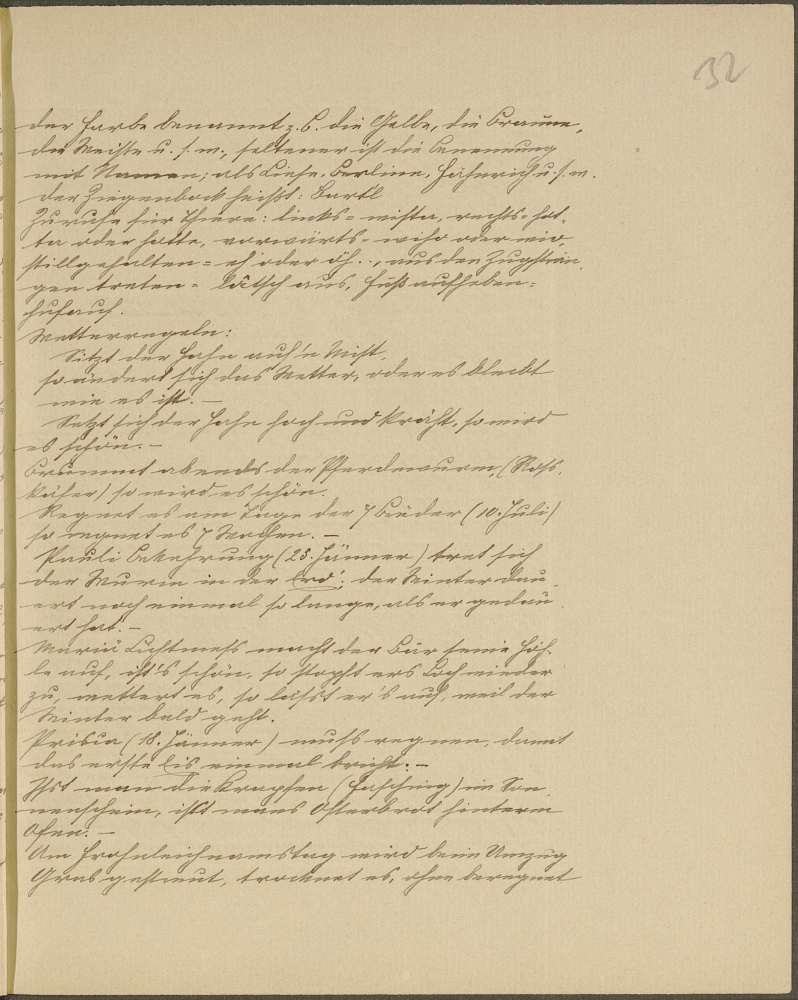 32
der Farbe benannt z. B. die Gelbe, die Braune,
die Weisse u. s. w., seltener ist die Benennung
mit Namen; als Liese, Berline, Fähnrich u. s. w.
der Ziegenbock heisst: Bartl
Zurufe für Thiere: links = wista, rechts = hot-
ta oder hotte, vorwärts = wiho oder wio,
stillgehalten = eh oder öh.., aus den Zugsträn-
gen treten = lätsch aus, Fuß aufheben =
Huf auf.
Wetterregeln:
Sitzt der Hahn auf'n Mist,
so ändert sich das Wetter, oder es bleibt
wie es ist. —
Setzt sich der Hahn hoch und kräht, so wird
es schön. —
Brummt abends der Pferdewurm, (Ross-
käfer) so wird es schön.
Regnet es am Tage der 7 Brüder (10. Juli)
so regnet es 7 Wochen. —
Pauli Bekehrung (25. Jänner) dret sich
der Wurm in der Erd'; der Winter dau-
ert noch einmal so lange, als er gedau-
ert hat. —
Mariä Lichtmess macht der Bär seine Höh-
le auf, ist's schön, so stopft ers Loch wieder
zu, wettert es, so lässt er's auf, weil der
Winter bald geht.
Prisca (18. Jänner) muss regnen, damit
das erste Eis einmal bricht. —
Isst man die Krapfen (Fasching) im Son-
nenschein, isst mans Osterbrot hinterm
Ofen. —
Am Frohnleichnamstag wird beim Umzug
Gras gestreut, trocknet es, ohne beregnet